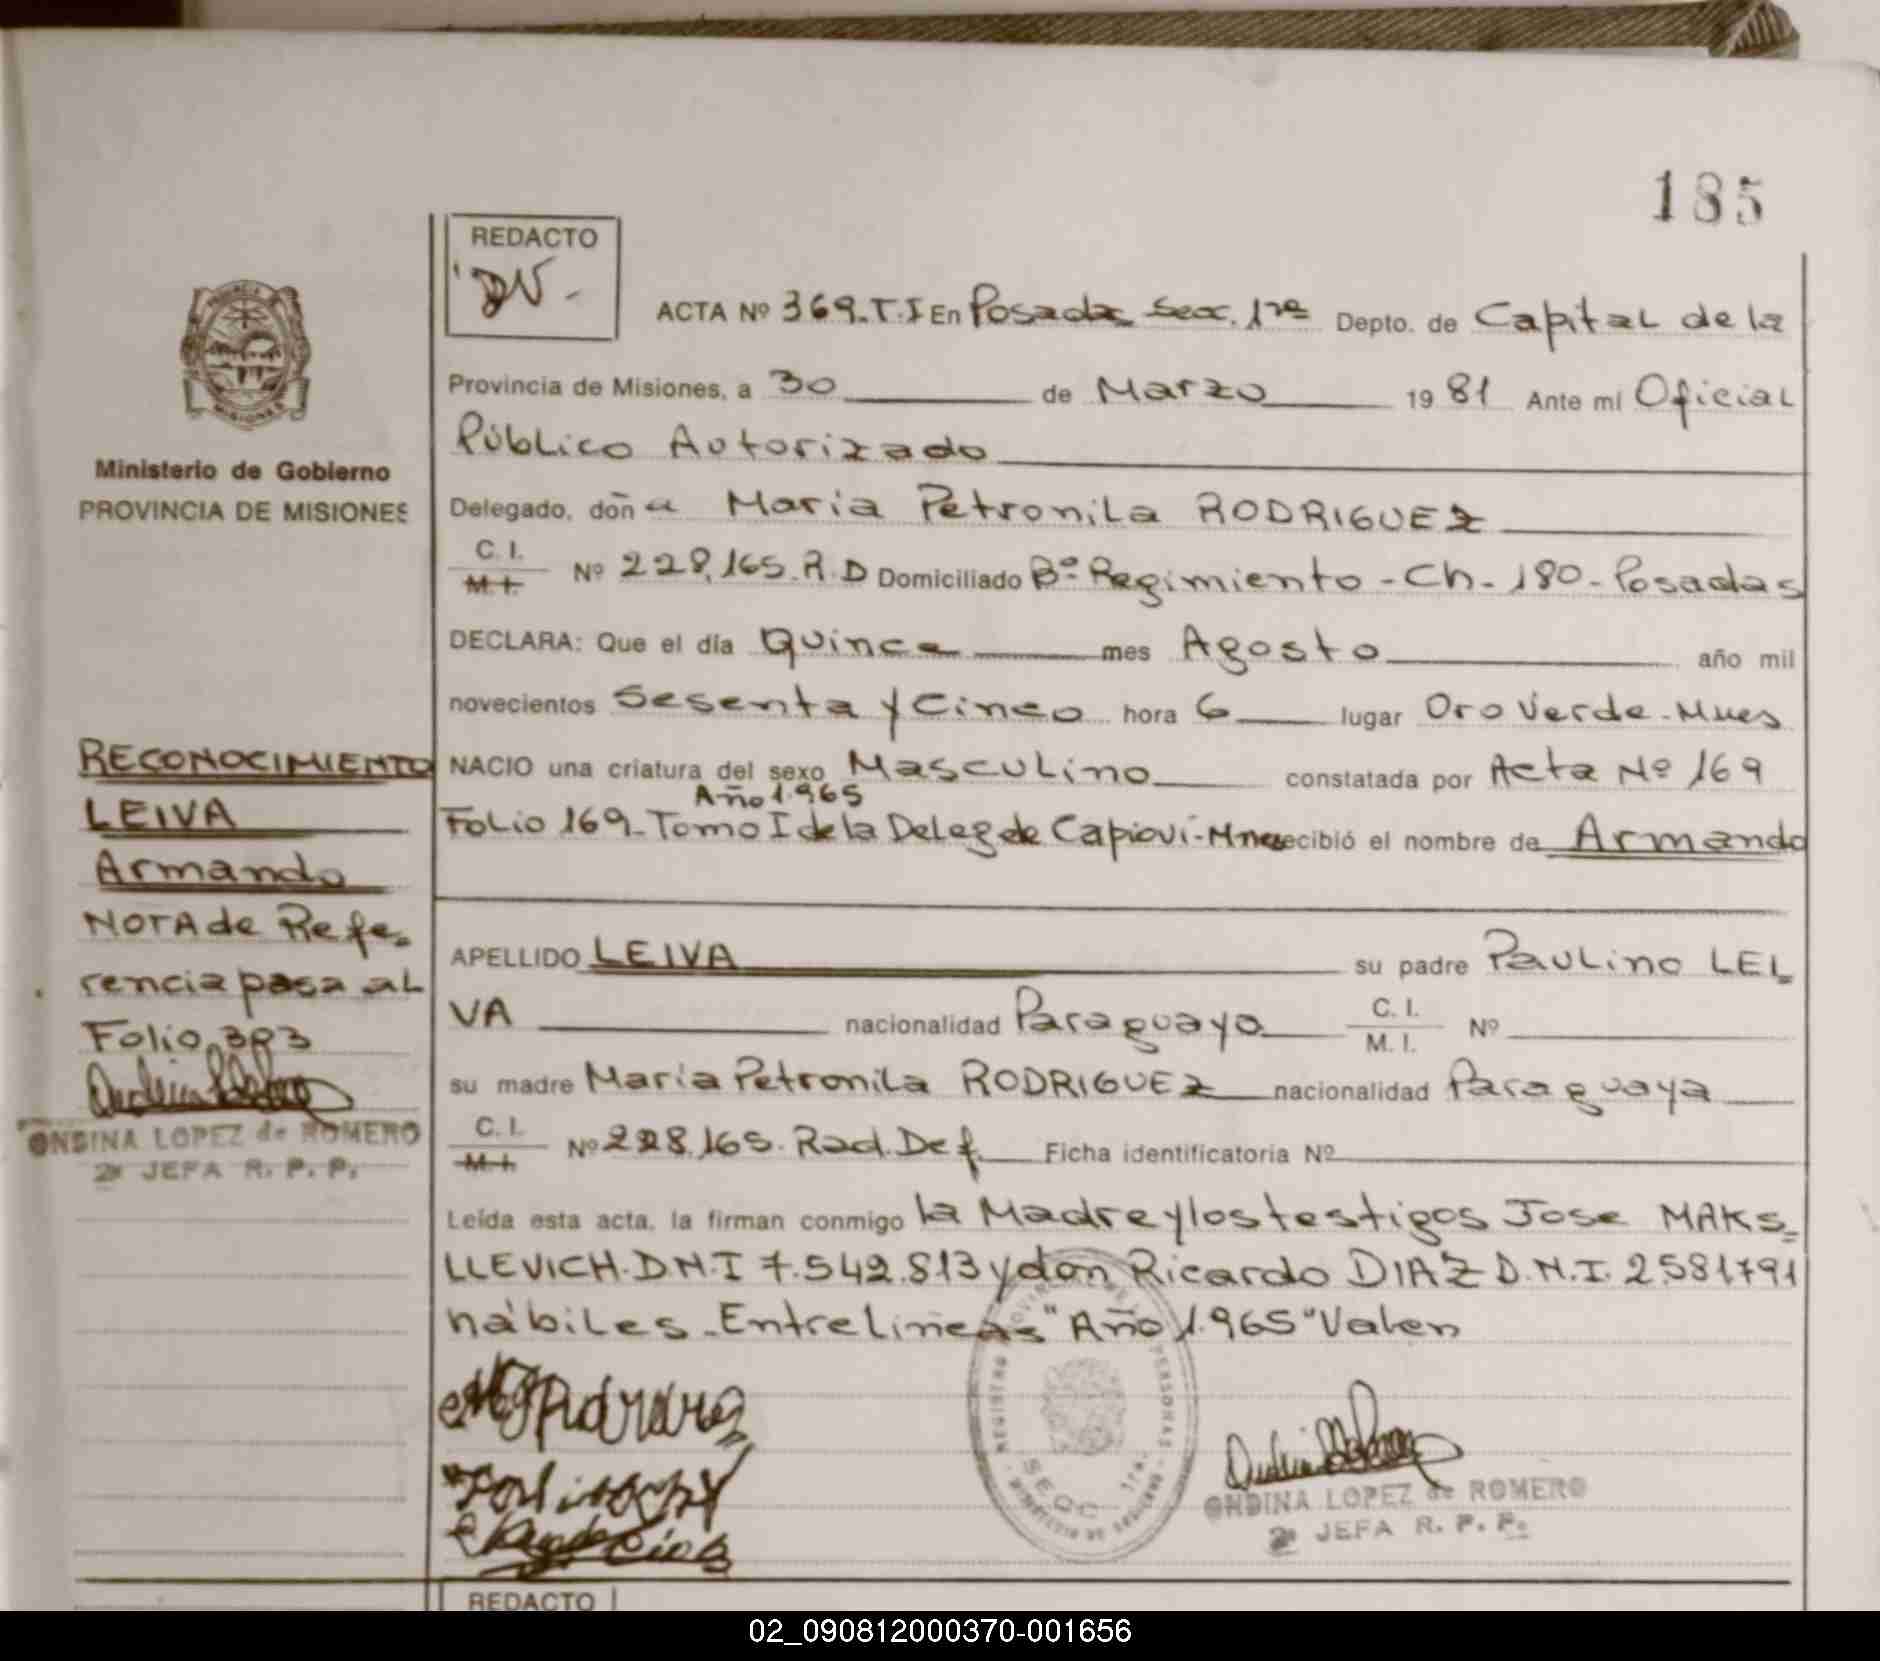 185
REDACTO
DN-
ACTA Nº 369-T.I En Posadas Secc. 1ra Depto. de Capital de la
Provincia de Misiones, a 30 de Marzo 1981 Ante mí Oficial
Público Autorizado
Ministerio de Gobierno
PROVINCIA DE MISIONES
Delegado, doña Maria Petronila RODRIGUEZ
C. I.
M. I. Nº 228,165.R.D Domiciliado Bº Regimiento - Ch - 180 - Posadas
DECLARA: Que el día Quince mes Agosto año mil
novecientos Sesenta y Cinco hora 6 lugar Oro Verde - Mnes
NACIO una criatura del sexo Masculino constatada por Acta Nº 169
Año 1.965
Folio 169-Tomo I de la Deleg de Capioví-Mnes recibió el nombre de Armando
RECONOCIMIENTO
LEIVA
Armando
NOTA de Refe-
rencia pasa al
Folio 383
ONDINA LOPEZ de ROMERO
2ª JEFA R. P. P.
APELLIDO LEIVA su padre Paulino LEI-
VA nacionalidad Paraguayo C. I.
M. I. Nº
su madre Maria Petronila RODRIGUEZ nacionalidad Paraguaya
C. I.
M. I. Nº 228,165. Rad. Def. Ficha identificatoria Nº
Leída esta acta, la firman conmigo la Madre y los testigos Jose MAKS-
LLEVICH.D.N.I 7.542.813 y don Ricardo DIAZ D.N.I. 2581791
hábiles. Entrelineas "Año 1.965" Valen
REGISTRO PROVINCIAL DE LAS PERSONAS
SECC 1ra.
MINISTERIO DE GOBIERNO
ONDINA LOPEZ de ROMERO
2ª JEFA R. P. P.
REDACTO
02_090812000370-001656